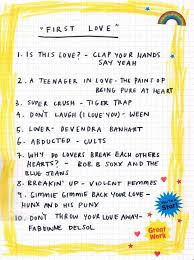 "FIRST LOVE"
1. IS THIS LOVE? - CLAP YOUR HANDS
SAY YEAH
2. A TEENAGER IN LOVE - THE PAINS OF
BEING PURE AT HEART
3. SUPER CRUSH - TIGER TRAP
4. DON'T LAUGH (I LOVE YOU) - WEEN
5. LOVER - DEVENDRA BANHART
6. ABDUCTED - CULTS
7. WHY DO LOVERS BREAK EACH OTHERS
HEARTS? - BOB B SOXX AND THE
BLUE JEANS
8. BREAKIN' UP - VIOLENT FEMMES
9. GIMMIE GIMMIE BACK YOUR LOVE -
HUNX AND HIS PUNX
10. DON'T THROW YOUR LOVE AWAY -
FABIENNE DELSOL
Great
Work